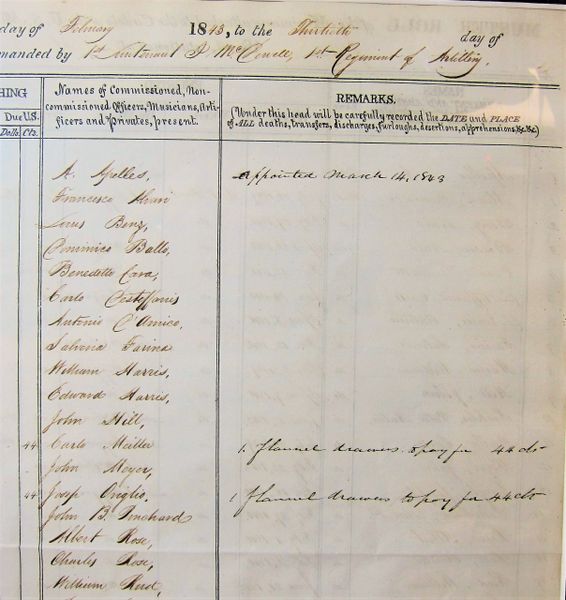 day of February 1843, to the Thirtieth day of
manded by 1st Lieutenant I McDowell, 1st Regiment of Artillery.
HING
Due U.S.
Dolls. Cts.
Names of Commissioned, Non-
commissioned Officers, Musicians, Arti-
ficers and Privates, present.
REMARKS.
(Under this head will be carefully recorded the DATE and PLACE
of ALL deaths, transfers, discharges, furloughs, desertions, apprehensions, &c. &c.)
A. Apelles, appointed March 14, 1843
Francesco
Louis Benz,
Dominico Balbo,
Benedetto Cava,
Carlo
Antonio D'Amico,
Salvina Farina
William Harris,
Edward Harris,
John Hill,
44 Carlo Meiller 1. flannel drawers. to pay for 44 cts
John Meyer,
44 Josep Origlio, 1 flannel drawers to pay for 44 cts
John B. Pinchard
Albert Rose,
Charles Rose,
William Reed,